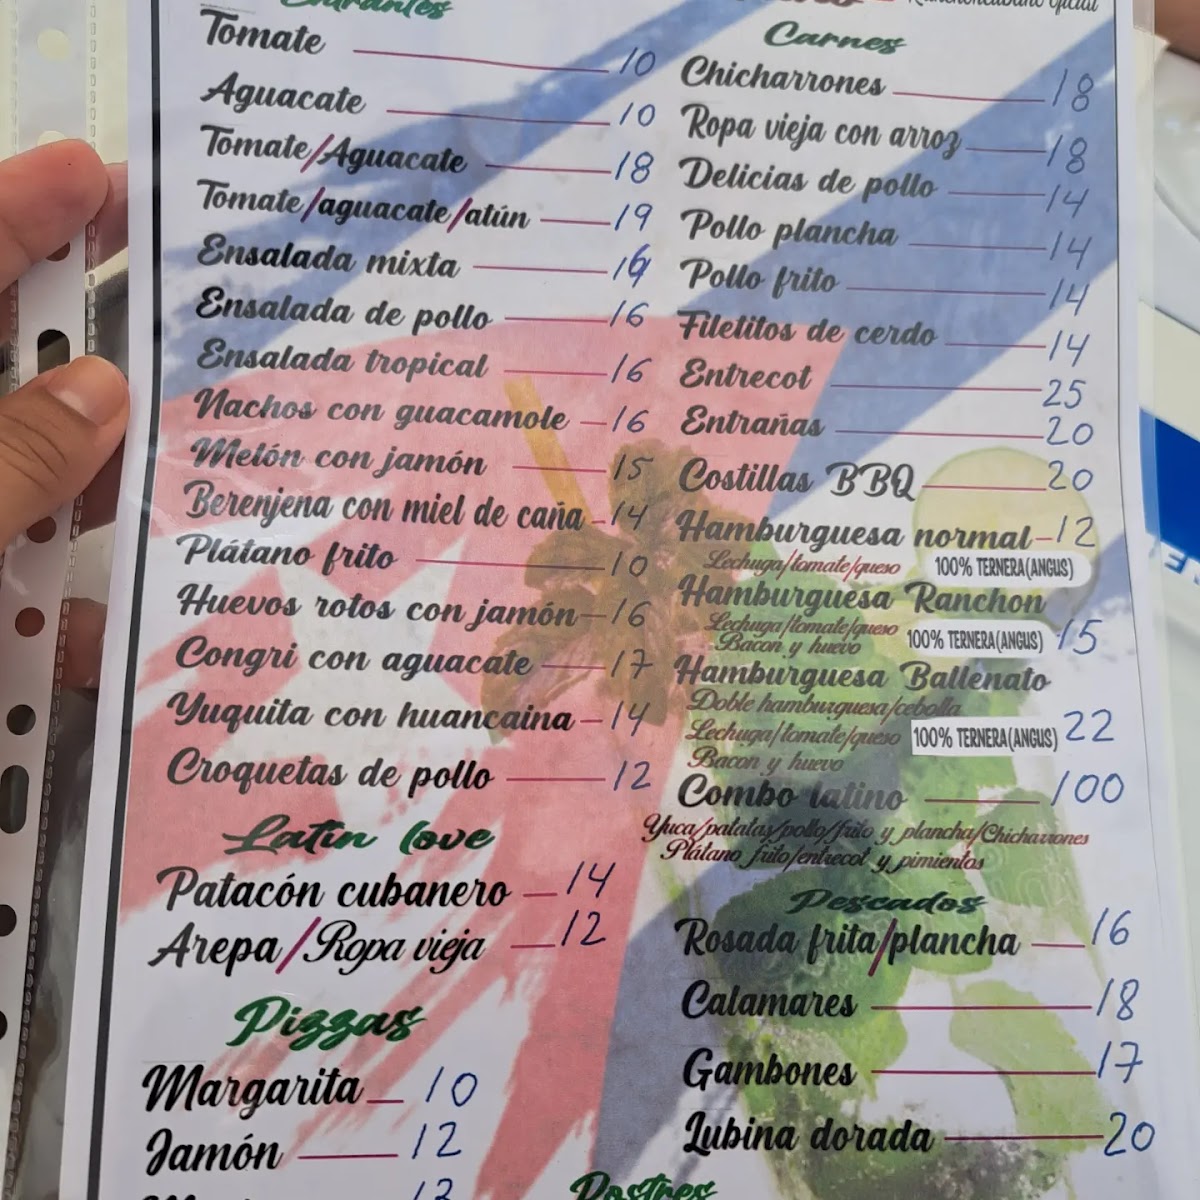 Entrantes
Tomate 10
Aguacate 10
Tomate/Aguacate 18
Tomate/aguacate/atún 19
Ensalada mixta 16
Ensalada de pollo 16
Ensalada tropical 16
Nachos con guacamole 16
Melón con jamón 15
Berenjena con miel de caña 14
Plátano frito 10
Huevos rotos con jamón 16
Congri con aguacate 17
Yuquita con huancaina 14
Croquetas de pollo 12
Latin love
Patacón cubanero 14
Arepa/Ropa vieja 12
Pizzas
Margarita 10
Jamón 12
oficial
Carnes
Chicharrones 18
Ropa vieja con arroz 18
Delicias de pollo 14
Pollo plancha 14
Pollo frito 14
Filetitos de cerdo 14
Entrecot 25
Entrañas 20
Costillas BBQ 20
Hamburguesa normal 12
Lechuga/tomate/queso 100% TERNERA(ANGUS)
Hamburguesa Ranchon
Lechuga/tomate/queso
Bacon y huevo 100% TERNERA(ANGUS) 15
Hamburguesa Ballenato
Doble hamburguesa/cebolla
Lechuga/tomate/queso 100% TERNERA(ANGUS) 22
Bacon y huevo
Combo latino 100
Yuca/patatas/pollo/frito y plancha/Chicharrones
Plátano frito/entrecot y pimientos
Pescados
Rosada frita/plancha 16
Calamares 18
Gambones 17
Lubina dorada 20
Postres